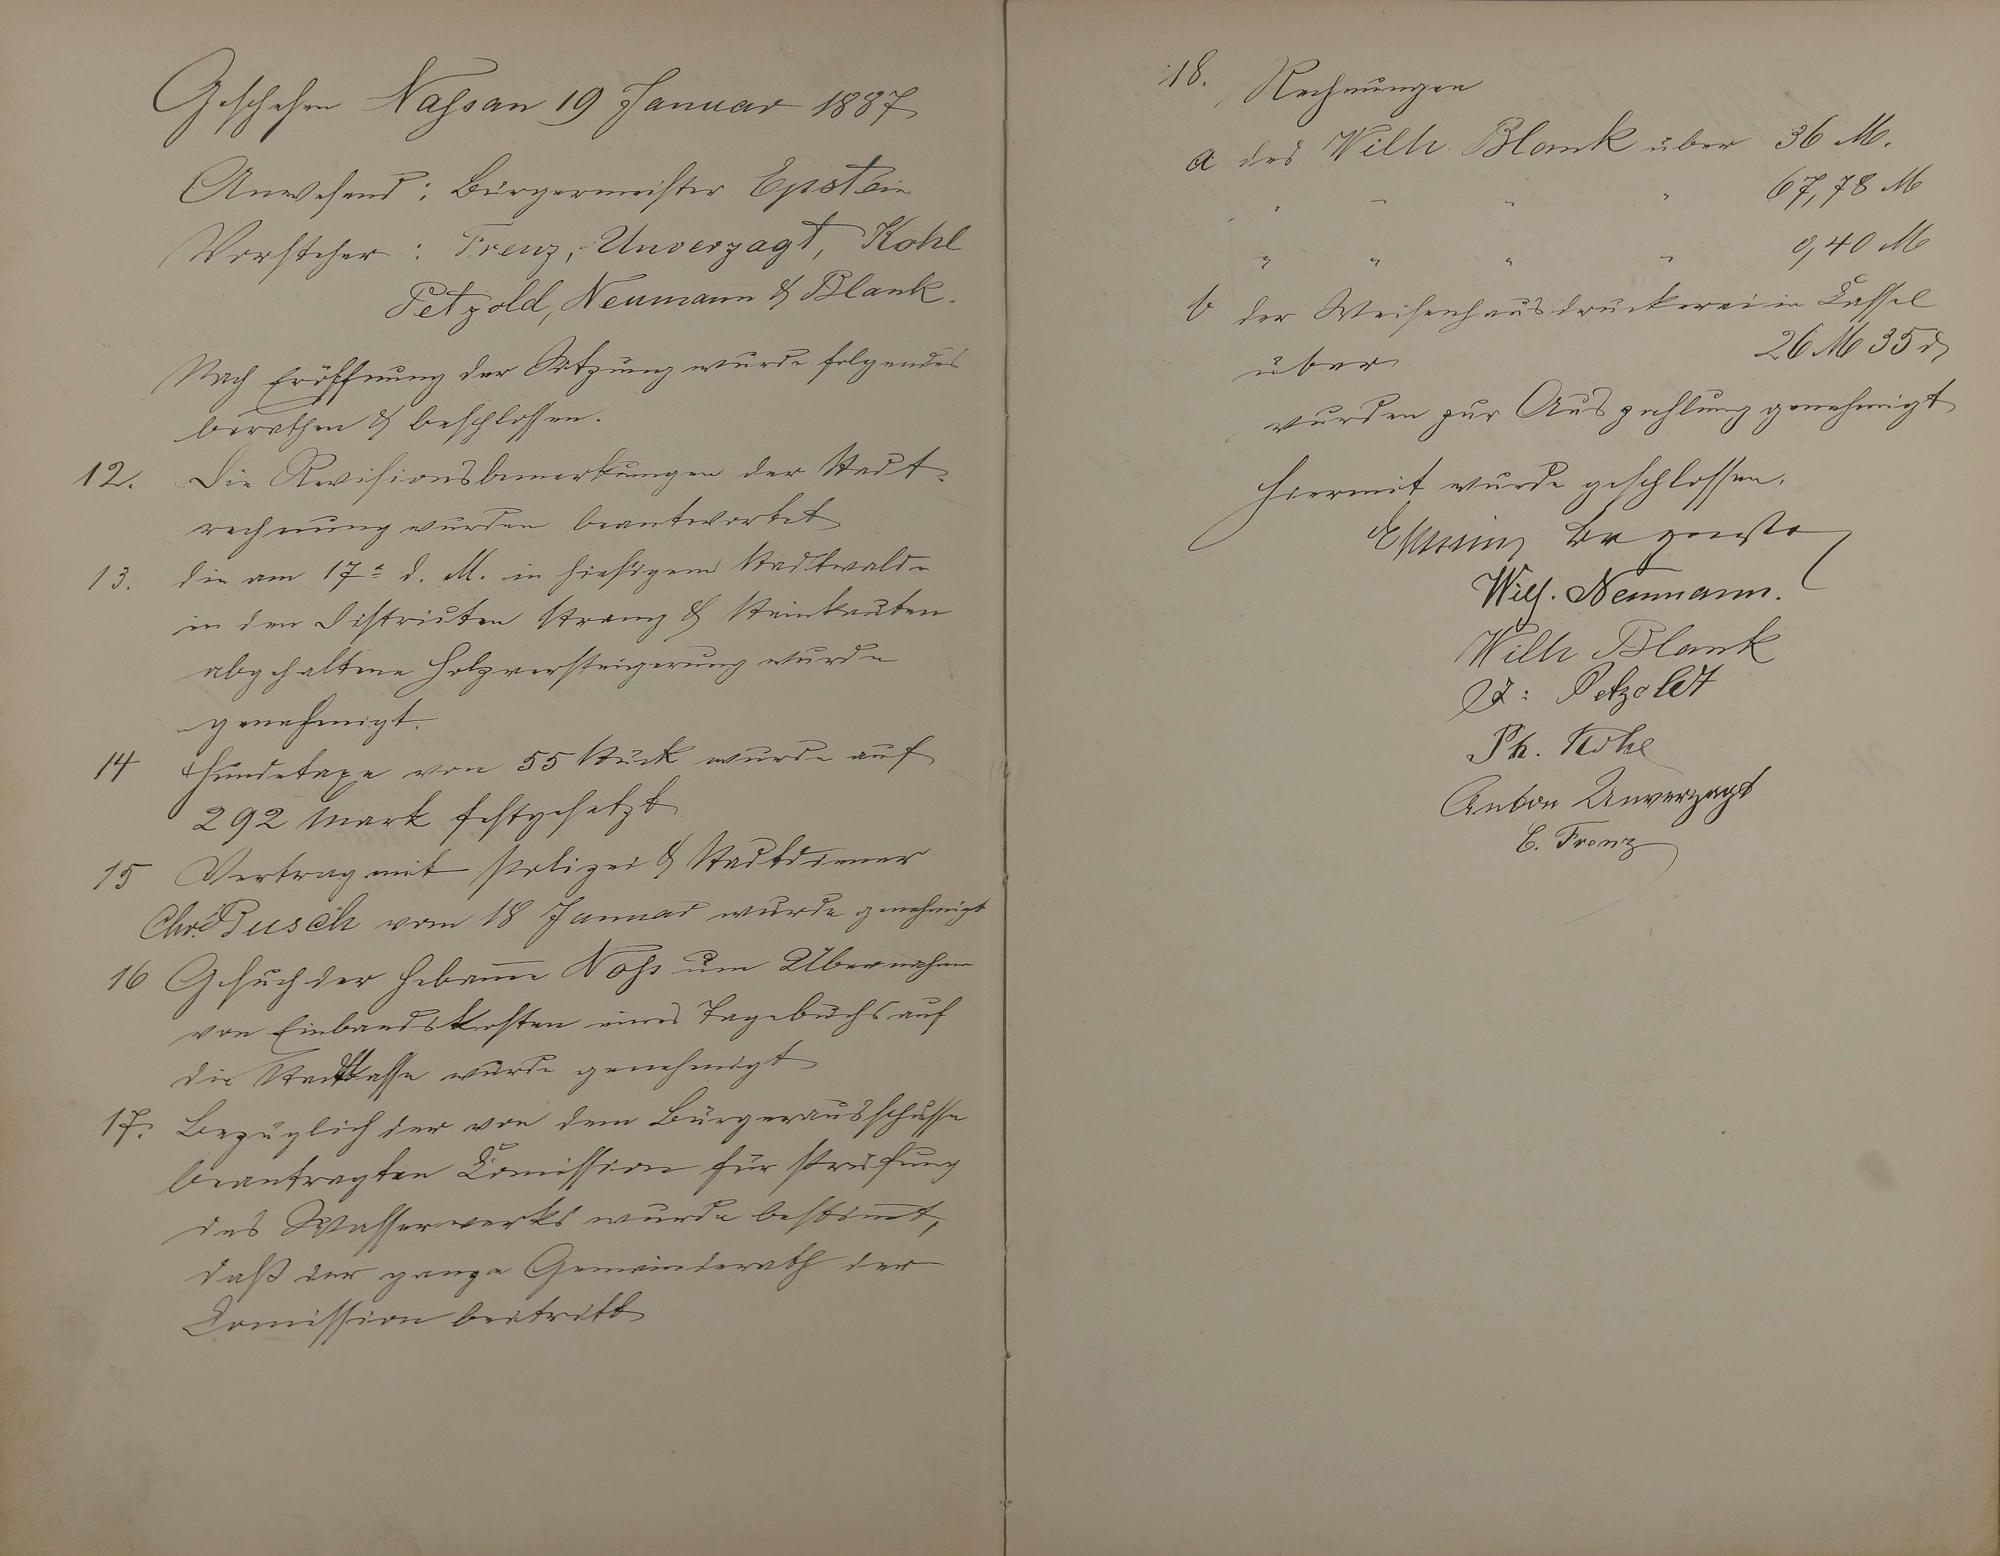 Geschehen Nassau 19 Januar 1887
Anwesend: Bürgermeister Epstein
Vorsteher: Frenz, Unverzagt, Kohl
Petzold, Neumann & Blank.
Nach Eröffnung der Sitzung wurde folgendes
berathen & beschlossen.
12. Die Revisionsbemerkungen der Stadt-
rechnung wurden beantwortet
13. die am 17n d. M. in hiesigem Stadtwalde
in den Districten Strang & Steinkauten
abgehaltene Holzversteigerung wurde
genehmigt.
14 Hundetaxe von 55 Stück wurde auf
292 Mark festgesetzt
15 Vertrag mit Polizei & Stadtdiener
Chr. Busch vom 18 Januar wurde genehmigt
16 Gesuch der Hebame Noss um Übernahme
von Einbandskosten eines Tagebuchs auf
die Stadtkasse wurde genehmigt
17. Bezüglich der von dem Bürgerausschusse
beantragten Comission für Prüfung
des Wasserwerks wurde bestimt,
daß der ganze Gemeinderath der
Comission beitritt
18. Rechnungen
a des Wilh. Blank über 36 M.
" " " " 67,78 M
" " " " 0,40 M
b der Weisenhausdruckerei in Cassel
über 26 M 35 d
wurden zur Auszahlung genehmigt
Hiermit wurde geschlossen.
Epstein
Wilh. Neumann.
Wilh Blank
Petzoldt
Ph. Kohl
Anton Unverzagt
C. Frenz